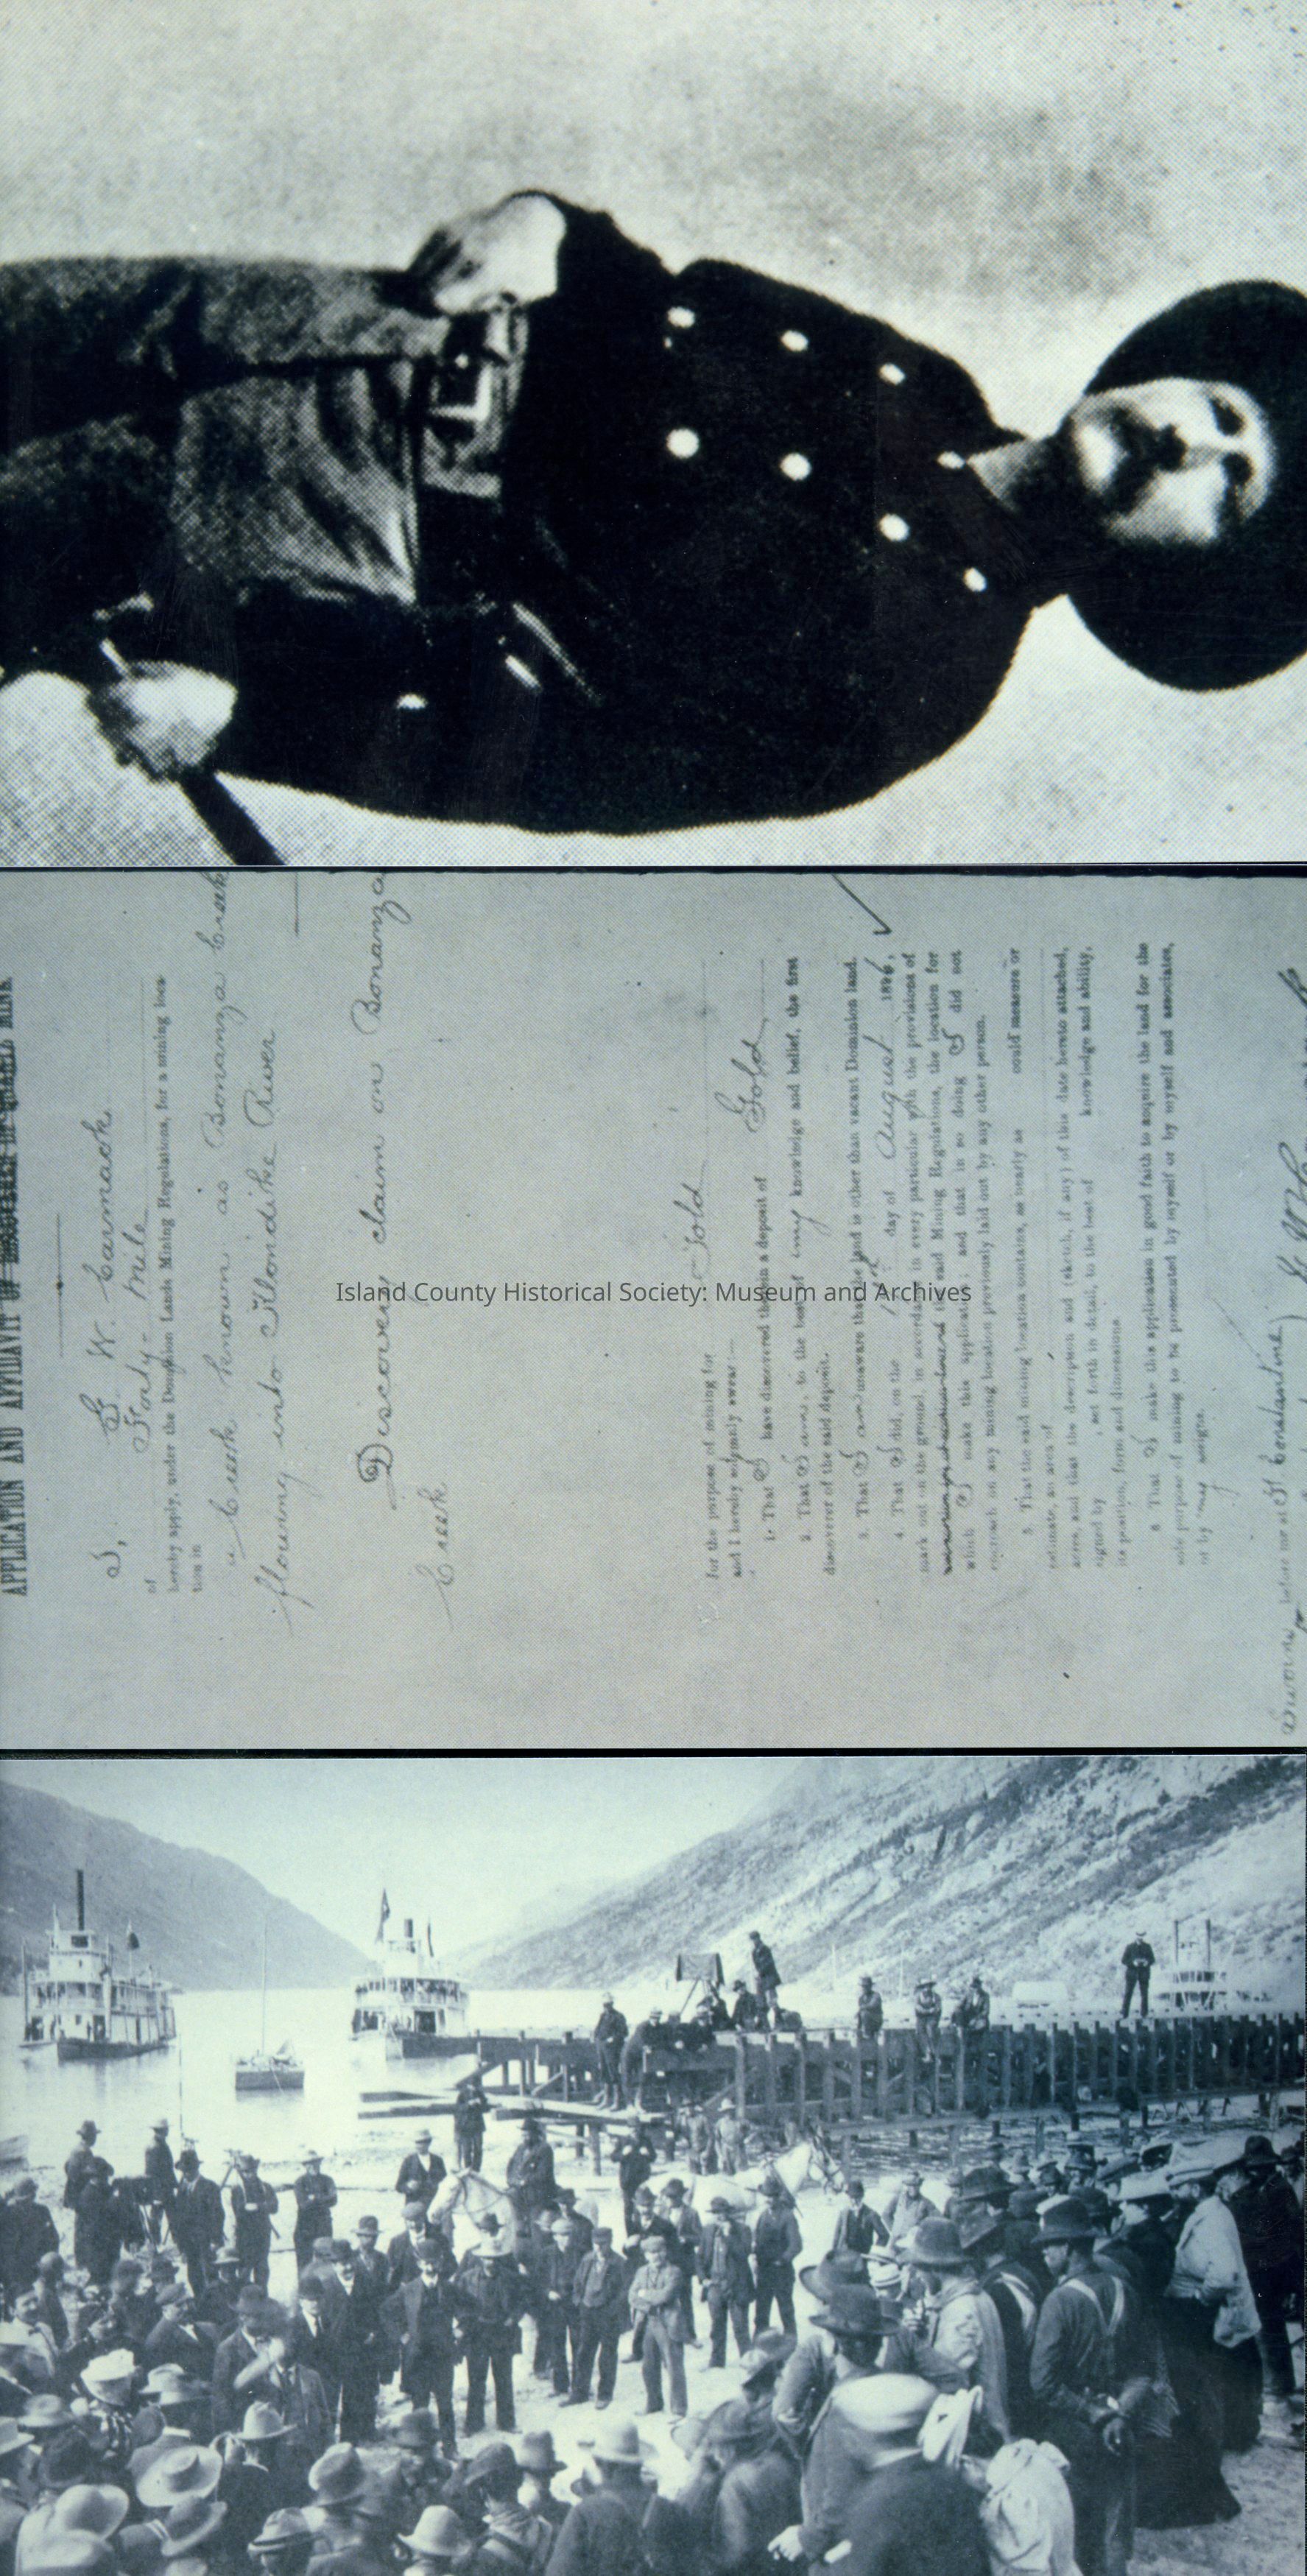 APPLICATION AND AFFIDAVIT OF DISCOVERER OF QUARTZ MINE
I, G. W. Carmack
of Forty-Mile
hereby apply, under the Dominion Lands Mining Regulations, for a mining loca-
tion in
a Creek known as Bonanza Creek
flowing into Klondike River
Discovery claim on Bonanza
Creek
for the purpose of mining for Gold
and I hereby solemnly swear:—
1. That I have discovered therein a deposit of Gold
2. That I am, to the best of my knowledge and belief, the first
discoverer of the said deposit.
3. That I am unaware that the land is other than vacant Dominion land.
4. That I did, on the day of August 1896,
mark out on the ground, in accordance in every particular with the provisions of
the said Mining Regulations, the location for
which I make this application; and that in so doing I did not
encroach on any mining location previously laid out by any other person.
5. That the said mining location contains, as nearly as could measure or
estimate, an area of
acres, and that the description and (sketch, if any) of this date hereto attached,
signed by , set forth in detail, to the best of knowledge and ability,
its position, form and dimensions.
6. That I make this application in good faith to acquire the land for the
sole purpose of mining to be prosecuted by myself or by myself and associates,
or by my assigns.
Sworn before me at Ft Constantine
Island County Historical Society: Museum and Archives